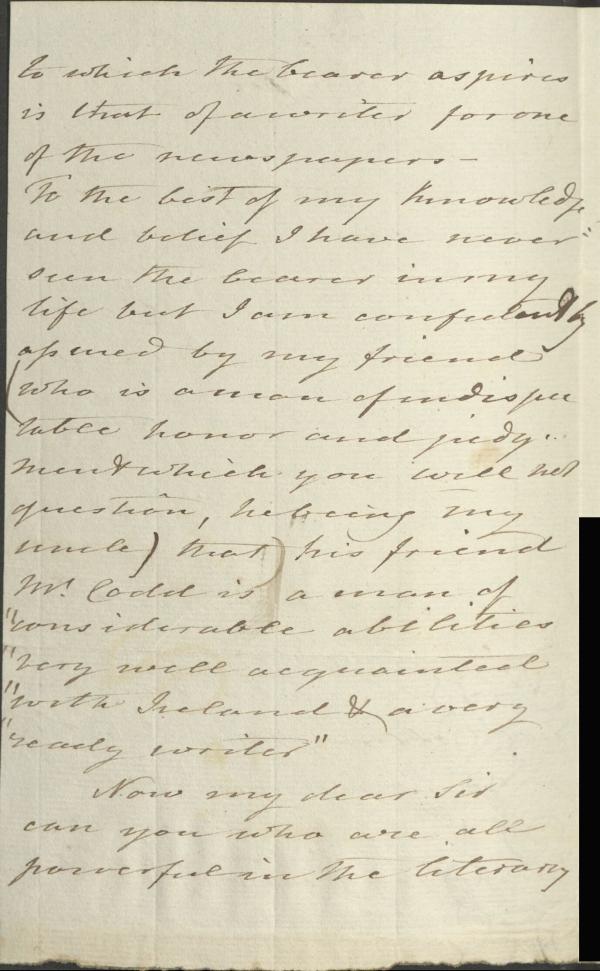 to which the bearer aspires
is that of a writer for one
of the newspapers —
To the best of my knowledge
and belief I have never
seen the bearer in my
life but I am confidently
assured by my friend
(who is a man of indispu
table honor and judg..
ment which you will not
question, he being my
uncle) that) his friend
Mr. Codd is a man of
"considerable abilities
"very well acquainted
"with Ireland & a very
"ready writer"
Now my dear Sir
can you who are all
powerful in the literary